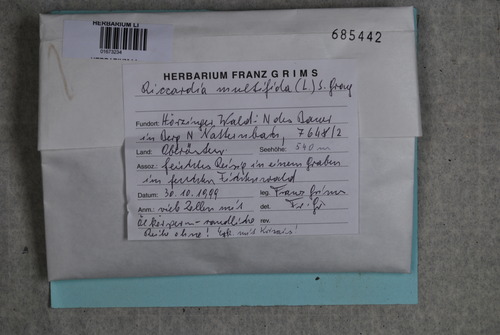 HERBARIUM LI
01573234
685442
HERBARIUM FRANZ GRIMS
Riccardia multifida (L) S. Gray
Fundort: Hörzinger Wald N des Bauer
in Berg N Natternbach, 7648/2
Land: Oberösterr. Seehöhe: 540 m
Assoz.: feuchtes Reisig in einem Graben
im feuchten Fichtenwald
Datum: 30.10.1999 leg. Franz Grims
Anm.: viele Zellen mit det. Fr. Gri
Ölkörpern - randliche rev.
Reihe ohne!